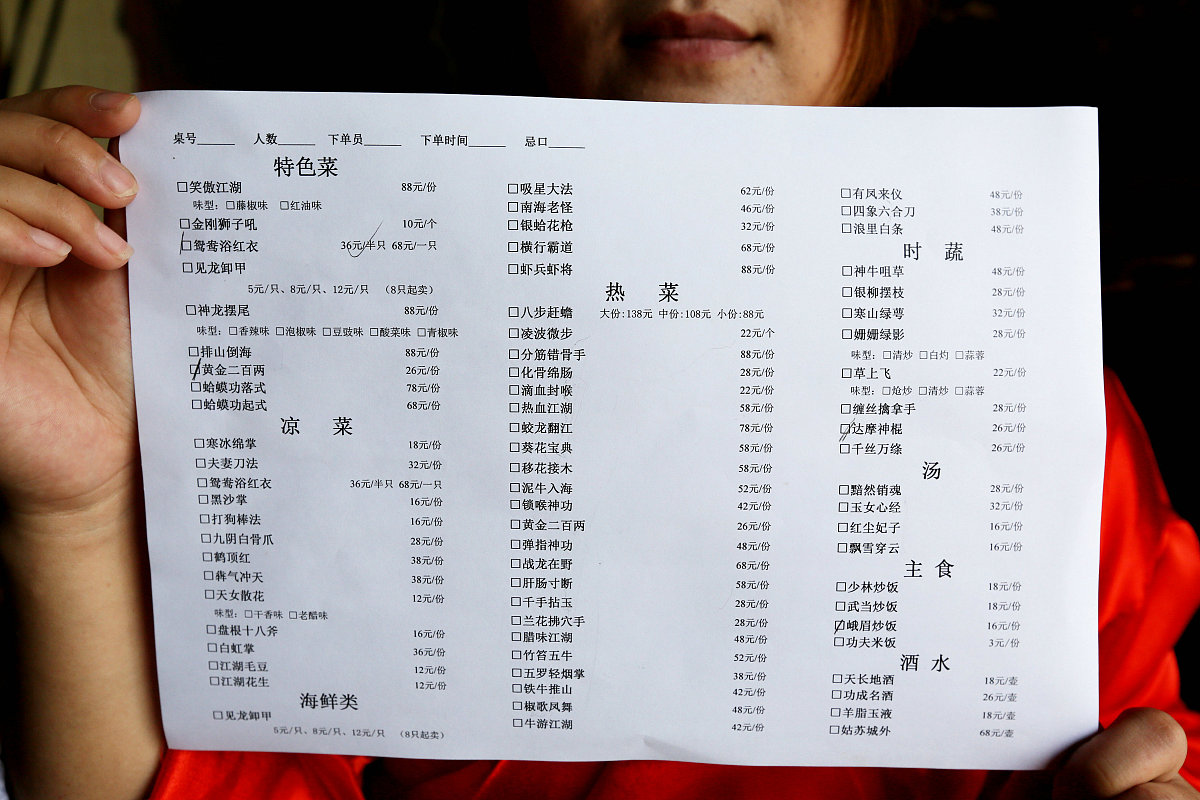 桌号______ 人数______ 下单员______ 下单时间______ 忌口______
特色菜
□笑傲江湖 88元/份
味型：□藤椒味 □红油味
□金刚狮子吼 10元/个
□鸳鸯浴红衣 36元/半只 68元/一只
□见龙卸甲
5元/只、8元/只、12元/只 （8只起卖）
□神龙摆尾 88元/份
味型：□香辣味 □泡椒味 □豆豉味 □酸菜味 □青椒味
□排山倒海 88元/份
□黄金二百两 26元/份
□蛤蟆功落式 78元/份
□蛤蟆功起式 68元/份
凉 菜
□寒冰绵掌 18元/份
□夫妻刀法 32元/份
□鸳鸯浴红衣 36元/半只 68元/一只
□黑沙掌 16元/份
□打狗棒法 16元/份
□九阴白骨爪 28元/份
□鹤顶红 38元/份
□犇气冲天 38元/份
□天女散花 12元/份
味型：□干香味 □老醋味
□盘根十八斧 16元/份
□白虹掌 36元/份
□江湖毛豆 12元/份
□江湖花生 12元/份
海鲜类
□见龙卸甲
5元/只、8元/只、12元/只 （8只起卖）
□吸星大法 62元/份
□南海老怪 46元/份
□银蛤花枪 32元/份
□横行霸道 68元/份
□虾兵虾将 88元/份
热 菜
□八步赶蟾 大份:138元 中份:108元 小份:88元
□凌波微步 22元/个
□分筋错骨手 88元/份
□化骨绵肠 28元/份
□滴血封喉 22元/份
□热血江湖 58元/份
□蛟龙翻江 78元/份
□葵花宝典 58元/份
□移花接木 58元/份
□泥牛入海 52元/份
□锁喉神功 42元/份
□黄金二百两 26元/份
□弹指神功 48元/份
□战龙在野 68元/份
□肝肠寸断 58元/份
□千手拈玉 28元/份
□兰花拂穴手 28元/份
□腊味江湖 48元/份
□竹笤五牛 52元/份
□五罗轻烟掌 38元/份
□铁牛推山 42元/份
□椒歌凤舞 48元/份
□牛游江湖 42元/份
□有凤来仪 48元/份
□四象六合刀 38元/份
□浪里白条 48元/份
时 蔬
□神牛咀草 48元/份
□银柳摆枝 28元/份
□寒山绿萼 32元/份
□姗姗绿影 28元/份
味型：□清炒 □白灼 □蒜蓉
□草上飞 22元/份
味型：□炝炒 □清炒 □蒜蓉
□缠丝擒拿手 28元/份
□达摩神棍 26元/份
□千丝万绦 26元/份
汤
□黯然销魂 28元/份
□玉女心经 32元/份
□红尘妃子 16元/份
□飘雪穿云 16元/份
主 食
□少林炒饭 18元/份
□武当炒饭 18元/份
□峨眉炒饭 16元/份
□功夫米饭 3元/份
酒 水
□天长地酒 18元/壶
□功成名酒 26元/壶
□羊脂玉液 18元/壶
□姑苏城外 68元/壶